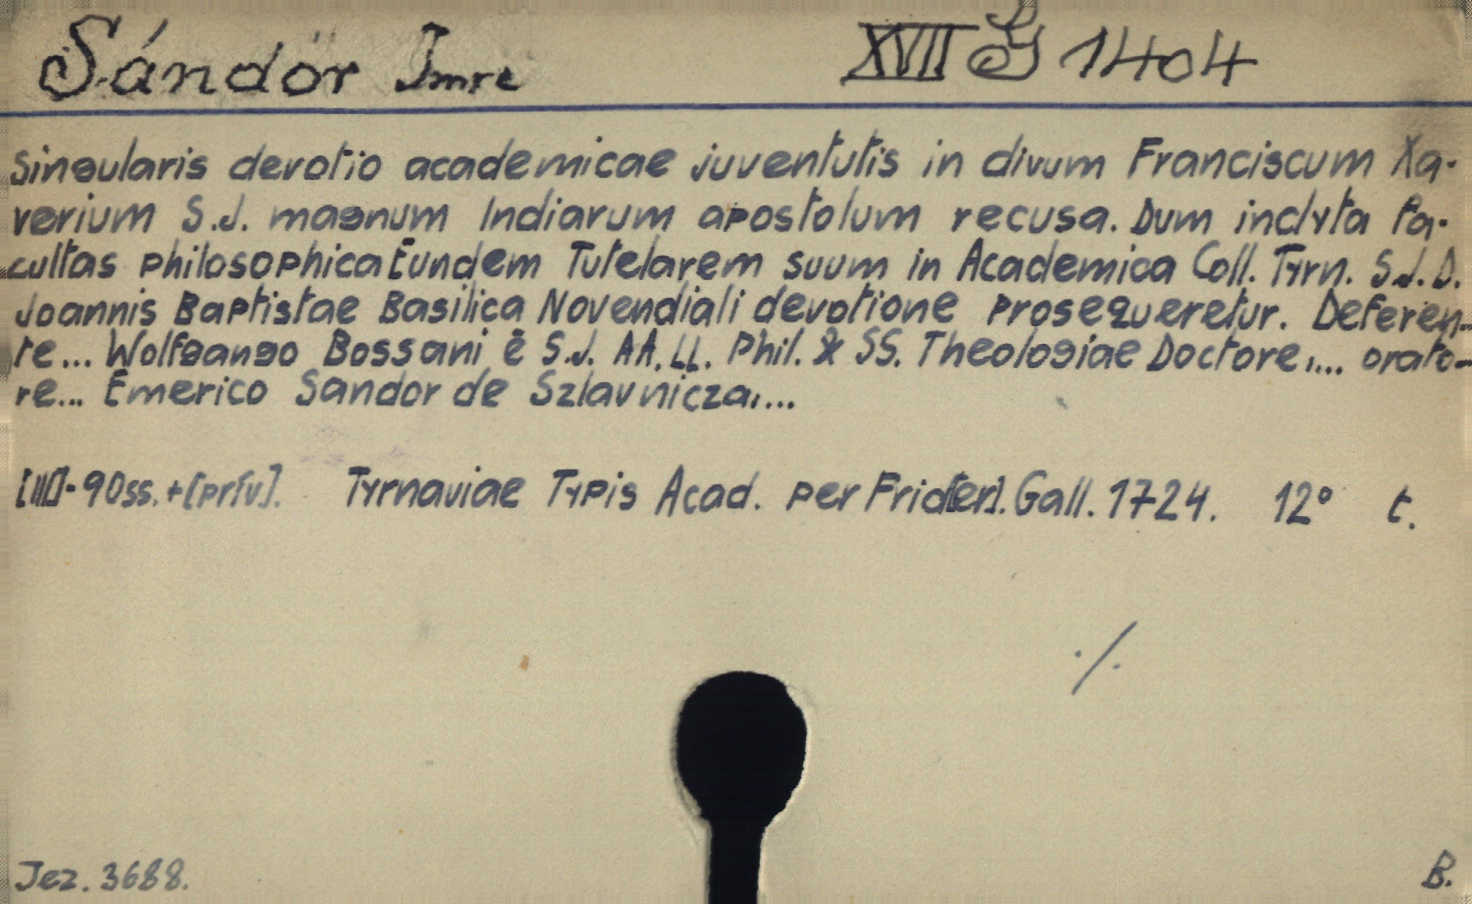 Sándor Imre XVII G 1404
Singularis devotio academicae juventutis in divum Franciscum Xa-
verium S.J. magnum Indiarum apostolum recusa. Dum inclyta fa-
cultas philosophica Eundem Tutelarem suum in Academica Coll. Tyrn. S.J.D.
Joannis Baptistae Basilica Novendiali devotione prosequeretur. Deferen-
te... Wolfgango Bossani è S.J. AA.LL. Phil. & SS. Theologiae Doctore,... orato-
re... Emerico Sandor de Szlavnicza,...
[III]-90ss.+[pr1v]. Tyrnaviae Typis Acad. per Frid[er]. Gall. 1724. 12° t.
./.
Jez. 3688. B.